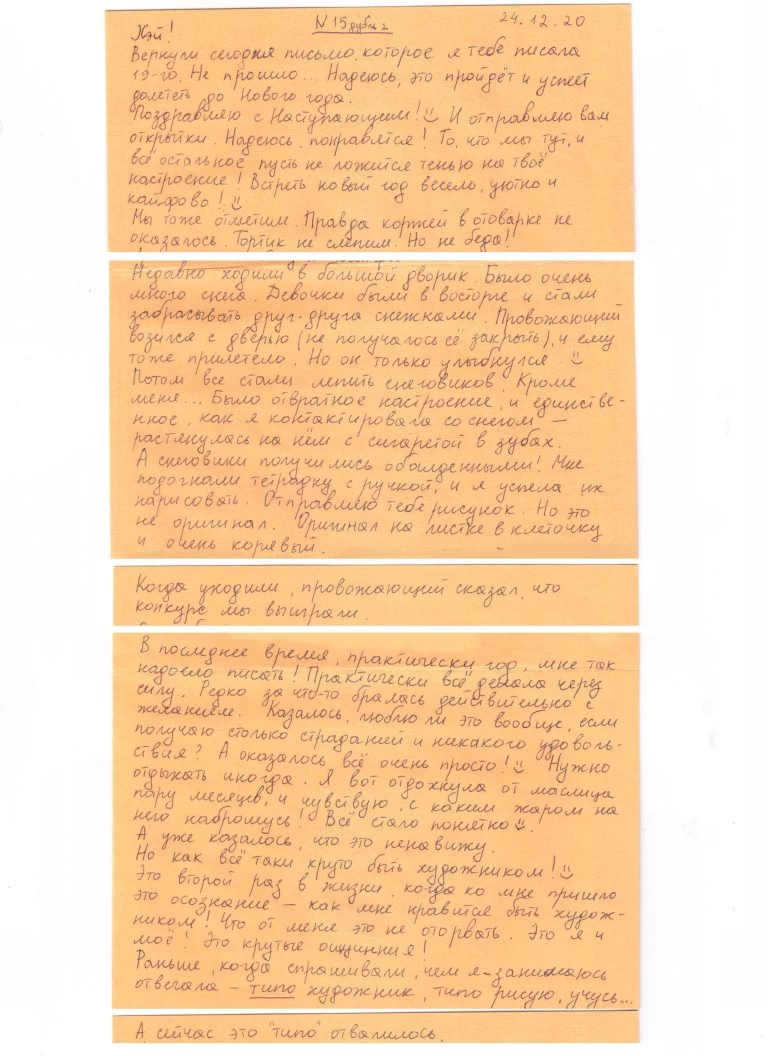 Хэй!
N 15 дубль 2
24.12.20
Вернули сегодня письмо, которое я тебе писала
19-го. Не прошло... Надеюсь, это пройдёт и успеет
долететь до Нового года.
Поздравляю с Наступающим! И отправляю вам
открытки. Надеюсь, понравятся! То, что мы тут, и
всё остальное пусть не ложится тенью на твоё
настроение! Встреть новый год весело, уютно и
кайфово!
Мы тоже отметим. Правда коржей в отоварке не
оказалось. Тортик не слепим. Но не беда!
Недавно ходили в большой дворик. Было очень
много снега. Девочки были в восторге и стали
забрасывать друг-друга снежками. Провожающий
возился с дверью (не получалось её закрыть), и ему
тоже прилетело. Но он только улыбнулся.
Потом все стали лепить снеговиков. Кроме
меня... Было отвратное настроение, и единстве-
нное, как я контактировала со снегом —
растянулась на нём с сигаретой в зубах.
А снеговики получились обалденными! Мне
подогнали тетрадку с ручкой, и я успела их
нарисовать. Отправляю тебе рисунок. Но это
не оригинал. Оригинал на листке в клеточку
и очень корявый.
Когда уходили, провожающий сказал, что
конкурс мы выиграли.
В последнее время, практически год, мне так
надоело писать! Практически всё делала через
силу. Редко за что-то бралась действительно с
желанием. Казалось, люблю ли это вообще, если
получаю столько страданий и никакого удоволь-
ствия? А оказалось всё очень просто! Нужно
отдыхать иногда. Я вот отдохнула от маслица
пару месяцев, и чувствую, с каким жаром на
него наброшусь! Всё стало понятно.
А уже казалось, что это ненавижу.
Но как всё таки круто быть художником!
Это второй раз в жизни, когда ко мне пришло
это осознание — как мне нравится быть худож-
ником! Что от меня это не оторвать. Это я и
моё! Это крутые ощущения!
Раньше, когда спрашивали, чем я занимаюсь
отвечала — типо художник, типо рисую, учусь...
А сейчас это "типо" отвалилось.